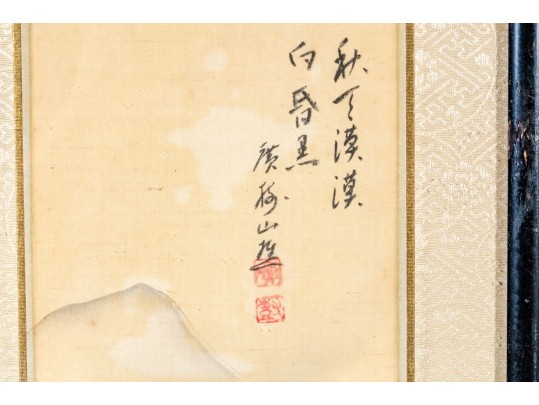 秋天漠漠
向昏黑
廣 山